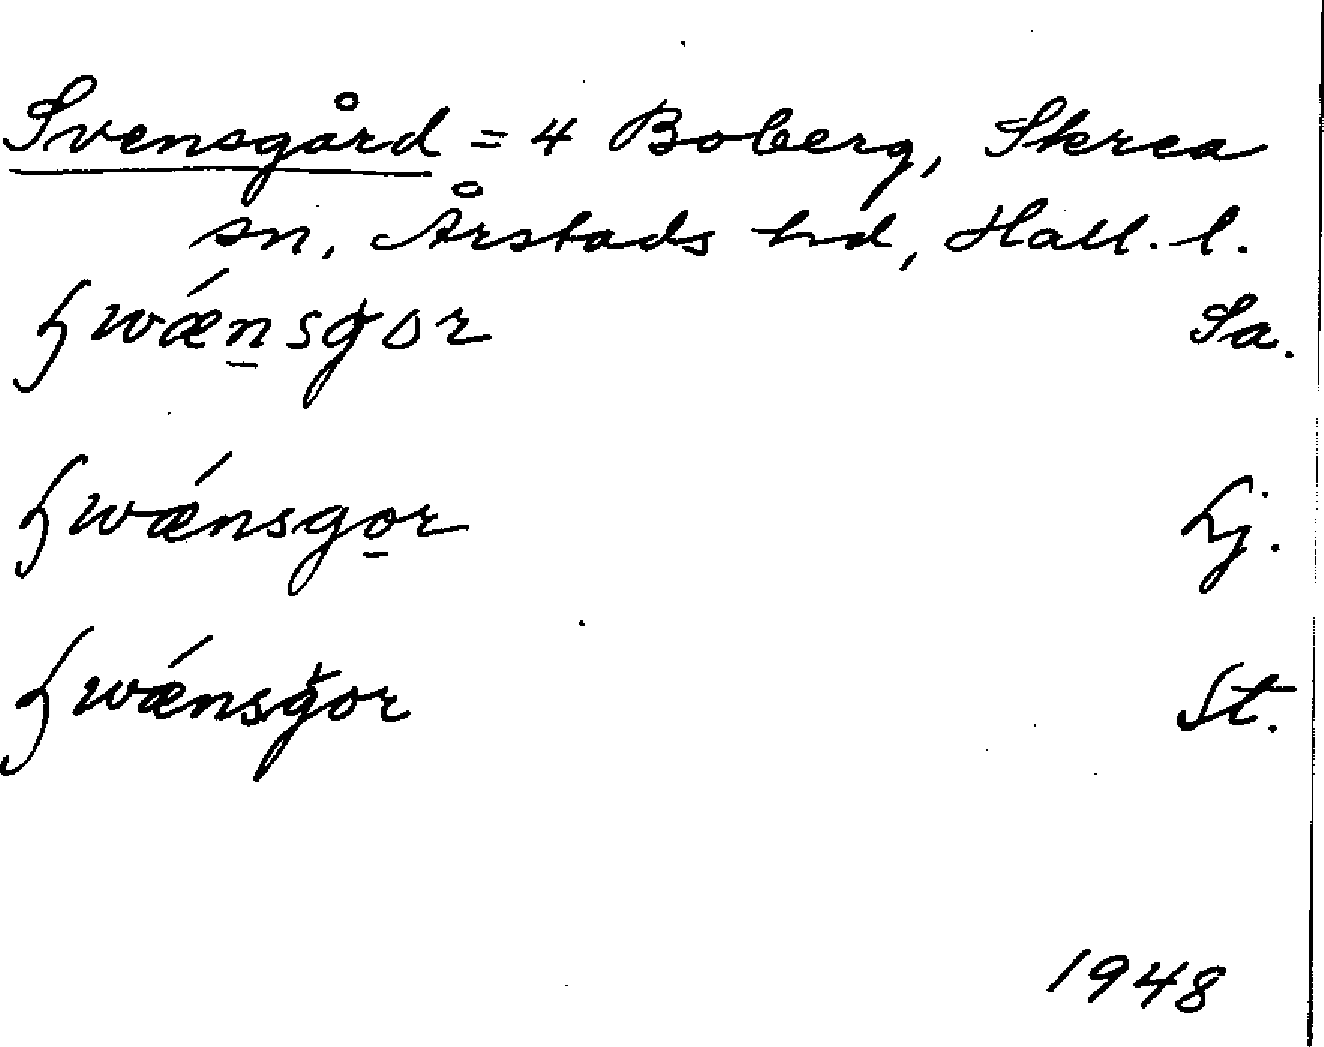 Svensgård = 4 Boberg, Skrea
sn, Årstads hd, Hall. l.
wǽnsgor Sa.
wǽnsgor Lj.
wǽnsgor St.
1948